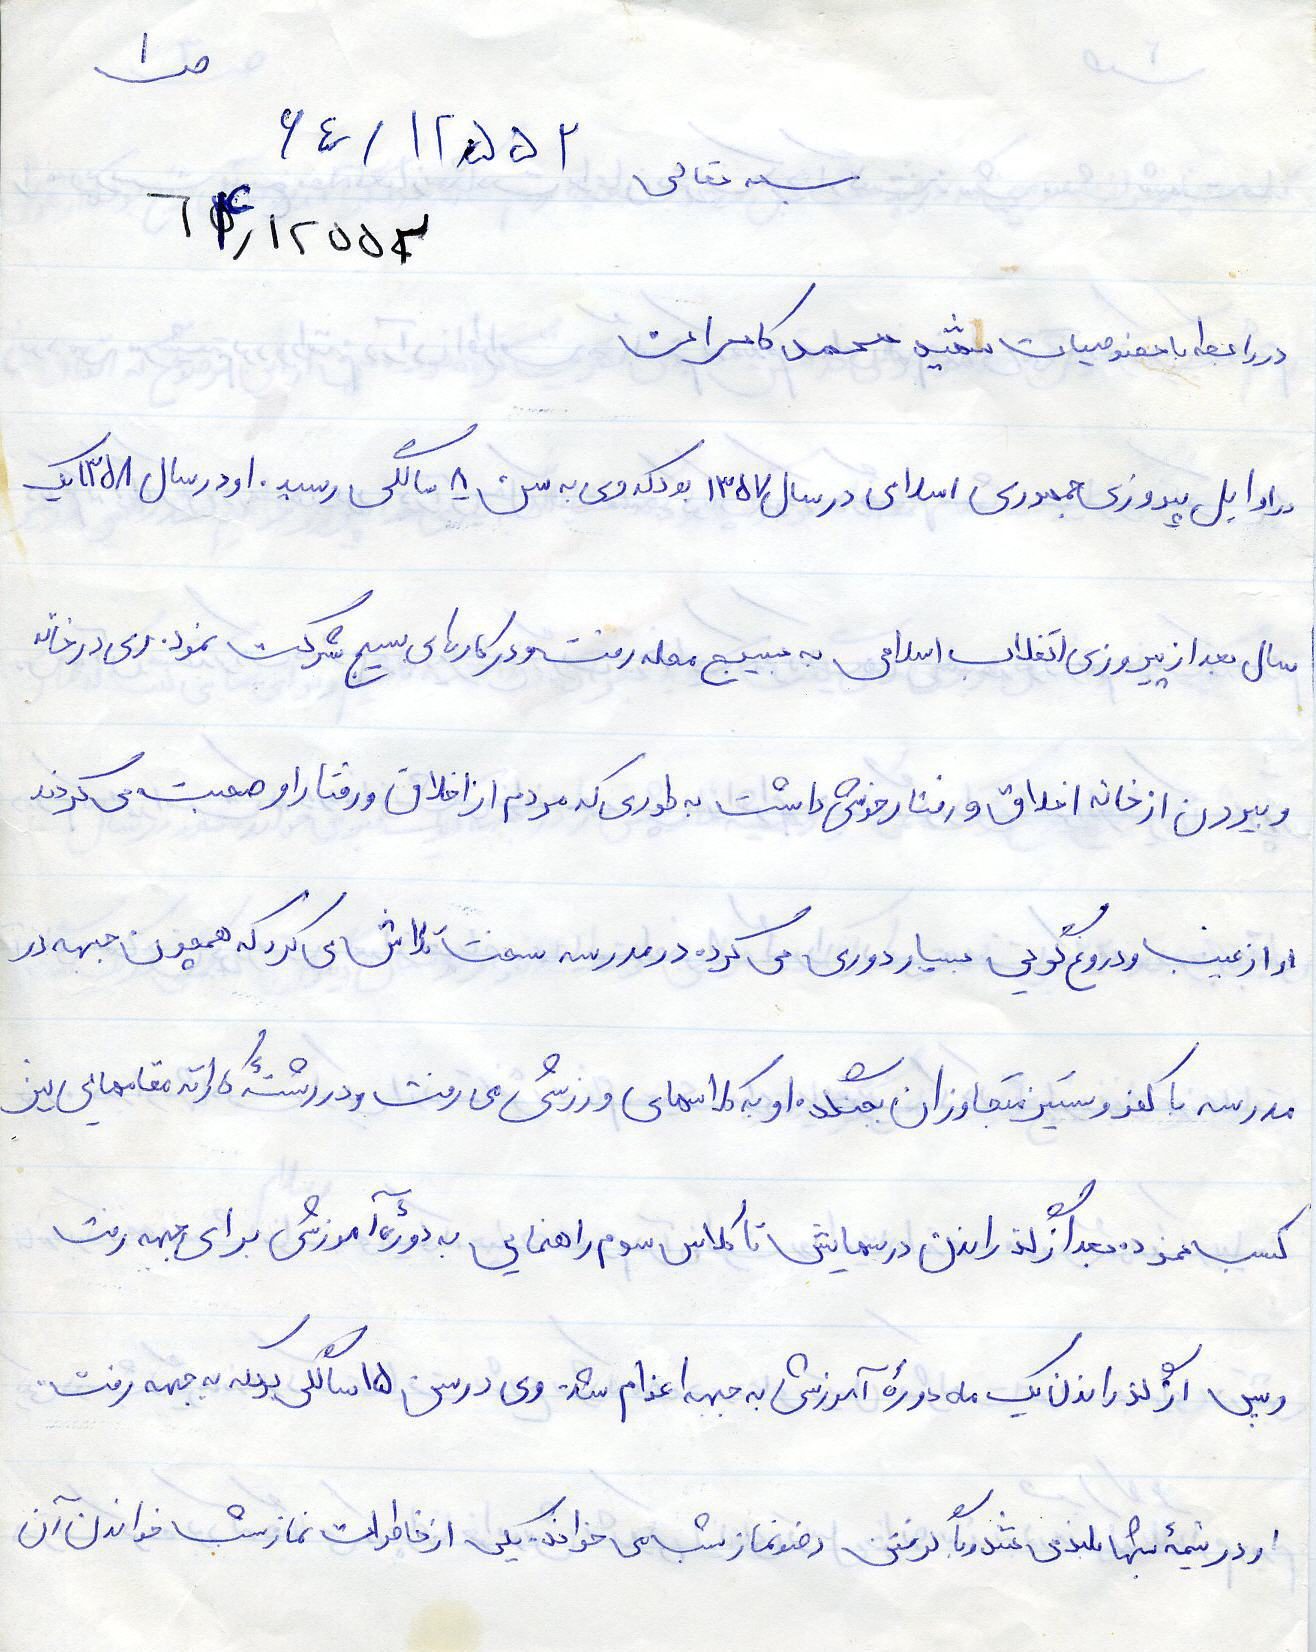 ص ۱
۶۴/۱۲۵۵۲
۶۴/۱۲۵۵۲
بسمه تعالی
در رابطه با خصوصیات شهید محمد کامرانی
در اوایل پیروزی جمهوری اسلامی در سال ۱۳۵۷ بود که وی به سن ۸ سالگی رسید. او در سال ۱۳۵۸ یک
سال بعد از پیروزی انقلاب اسلامی به بسیج محله رفت و در کارهای بسیج شرکت نمود. وی در خانه
و بیرون از خانه اخلاق و رفتار خوشی داشت به طوری که مردم از اخلاق و رفتار او صحبت می کردند
او از غیبت و دروغ گویی بسیار دوری می کرد. در مدرسه سخت تلاش می کرد که همچون جبهه در
مدرسه با کفر و ستیز متجاوزان بجنگد. او به کلاسهای ورزشی می رفت و در رشتهٔ کاراته مقامهایی نیز
کسب نمود. بعد از گذراندن درسهایش تا کلاس سوم راهنمایی به دورهٔ آموزشی برای جبهه رفت
و پس از گذراندن یک ماه دورهٔ آموزشی به جبهه اعزام شد. وی در سن ۱۵ سالگی بود که به جبهه رفت.
او در نیمهٔ شبها بلند می شد و با گرفتن وضو نماز شب می خواند. یکی از خاطرات نماز شب خواندن آن